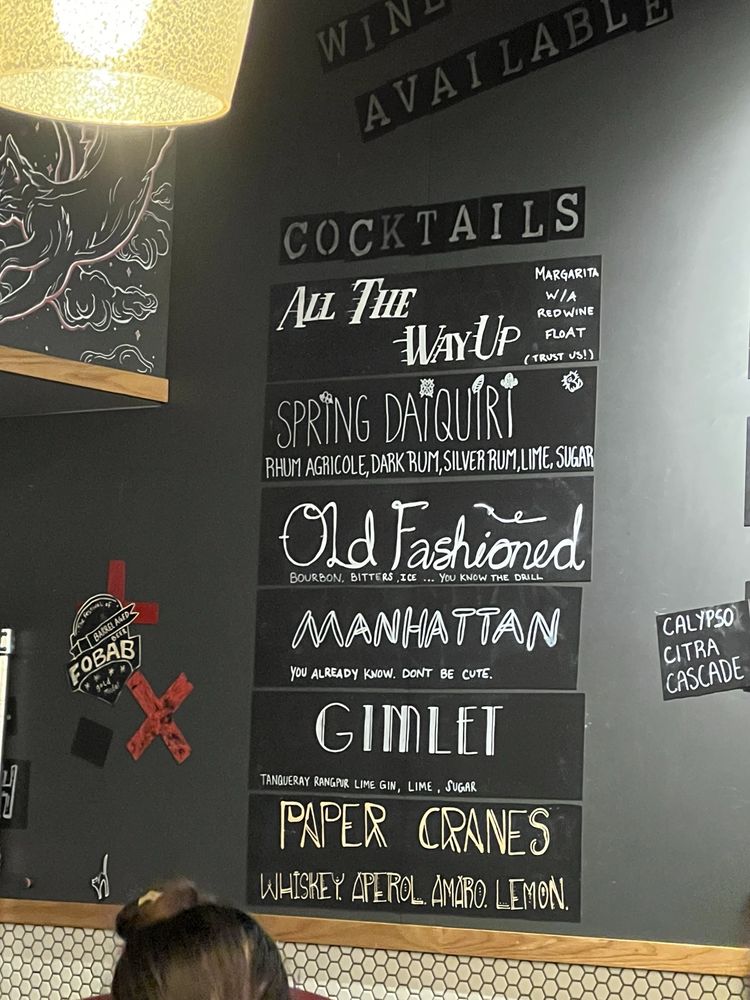 WINE
AVAILABLE
COCKTAILS
ALL THE
WAY UP
MARGARITA
W/A
RED WINE
FLOAT
(TRUST US!)
SPRING DAIQUIRI
RHUM AGRICOLE, DARK RUM, SILVER RUM, LIME, SUGAR
Old Fashioned
BOURBON, BITTERS, ICE ... YOU KNOW THE DRILL
MANHATTAN
YOU ALREADY KNOW. DONT BE CUTE.
GIMLET
TANQUERAY RANGPUR LIME GIN, LIME, SUGAR
PAPER CRANES
WHISKEY. APEROL. AMARO. LEMON.
the festival of
BARREL AGED
BEER
FOBAB
gold
CALYPSO
CITRA
CASCADE